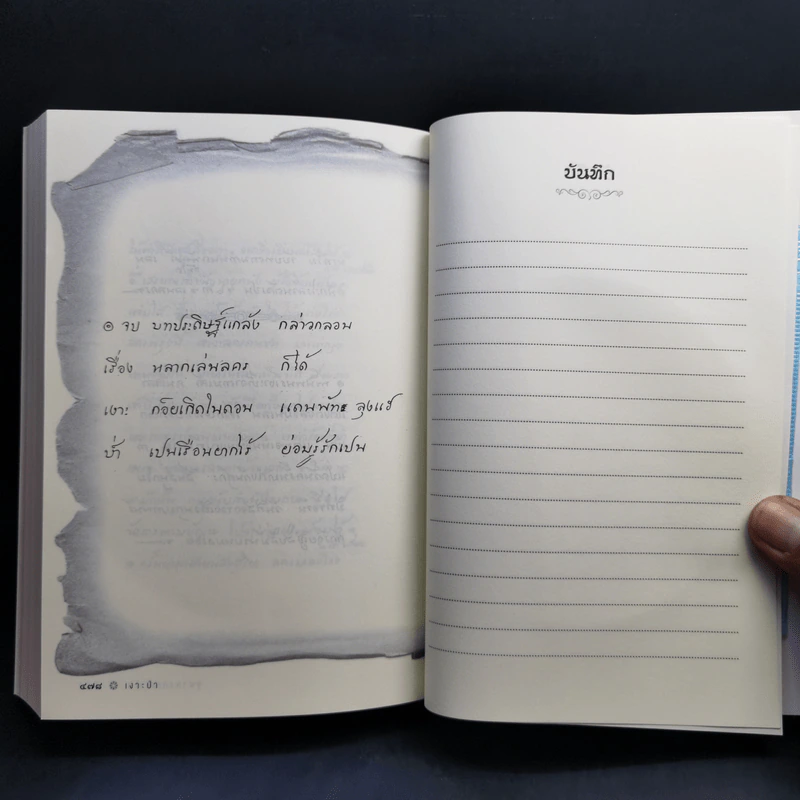 ๏ จบ บทประดิษฐ์แกล้ง กล่าวกลอน
เรื่อง หลากเล่นลคร ก็ได้
เงาะ ก็อยเกิดในดอน แดนพัทะ ลุงแฮ
ป่า เปนเรือนยากไร้ ย่อมรู้รักเปน
๔๗๘ เงาะป่า
บันทึก